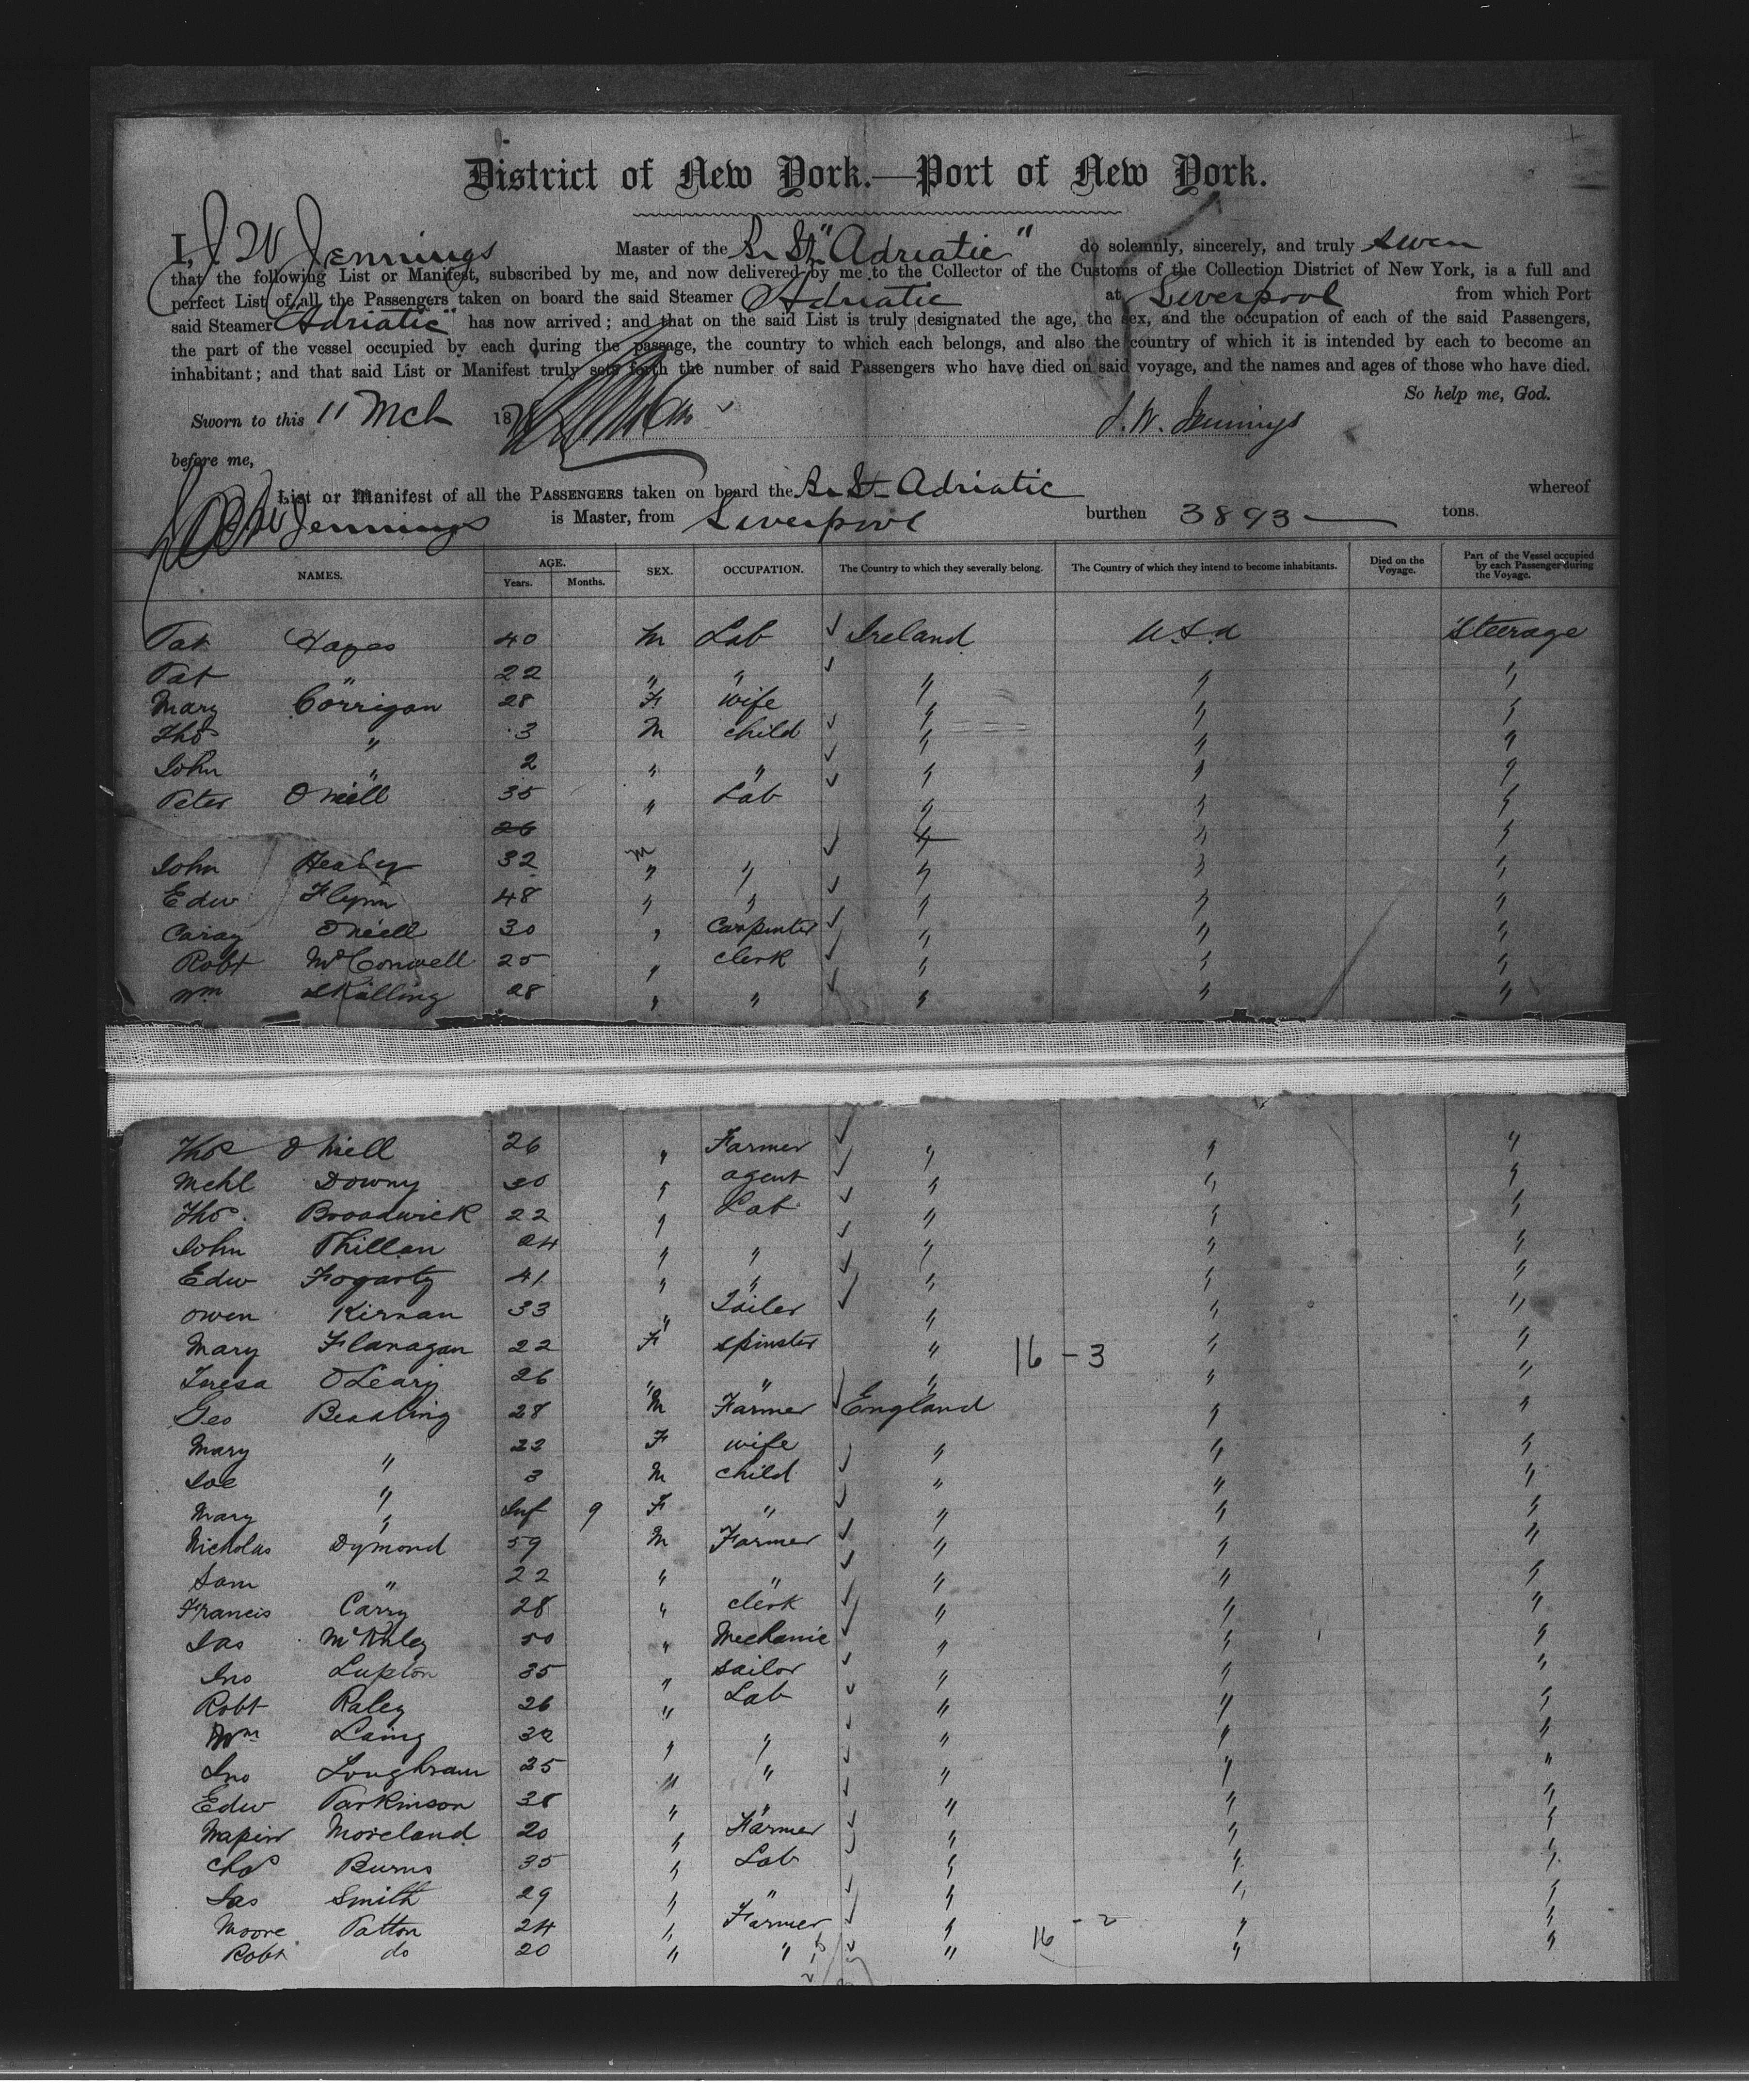 District of New York.—Port of New York.
I, J W Jennings Master of the Br St "Adriatic" do solemnly, sincerely, and truly swear
that the following List or Manifest, subscribed by me, and now delivered by me to the Collector of the Customs of the Collection District of New York, is a full and
perfect List of all the Passengers taken on board the said Steamer Adriatic at Liverpool from which Port
said Steamer Adriatic" has now arrived; and that on the said List is truly designated the age, the sex, and the occupation of each of the said Passengers,
the part of the vessel occupied by each during the passage, the country to which each belongs, and also the country of which it is intended by each to become an
inhabitant; and that said List or Manifest truly sets forth the number of said Passengers who have died on said voyage, and the names and ages of those who have died.
So help me, God.
Sworn to this 11 Mch 18 J. W. Jennings
before me,
List or Manifest of all the PASSENGERS taken on board the Br St Adriatic whereof
Jennings is Master, from Liverpool burthen 3893 tons.
NAMES. AGE. Years. Months. SEX. OCCUPATION. The Country to which they severally belong. The Country of which they intend to become inhabitants. Died on the Voyage. Part of the Vessel occupied by each Passenger during the Voyage.
Pat Hayes 40 M Lab Ireland U.S.A Steerage
Pat " 22 " " " " "
Mary Corrigan 28 F wife " " "
Thos " 3 M child " " "
John " 2 " " " " "
Peter O'Neill 35 " Lab " " "
26 " " "
John Healey 32 M " " " " "
Edw Flynn 48 " " " " "
O'Neill 30 " Carpenter " " "
Robt McConwell 25 " clerk " " "
Wm Skilling 28 " " " " "
Thos O'Neill 26 " Farmer " " "
Mchl Downy 30 " agent " " "
Thos. Broadwick 22 " Lab " " "
John Phillan 24 " " " " "
Edw Fogarty 41 " " " " "
Owen Kirnan 33 " Tailer " " "
Mary Flanagan 22 F spinster " 16 - 3 " "
Teresa O'Leary 26 " " " " "
Geo Beadling 28 M Farmer England " "
Mary " 22 F wife " " "
Joe " 3 M child " " "
Mary " Inf 9 F " " " "
Nicholas Dymond 59 M Farmer " " "
Sam " 22 " " " " "
Francis Carry 28 " clerk " " "
Jas 50 " Mechanic " " "
Jno Lupton 35 " sailor " " "
Robt Raley 26 " Lab " " "
Wm Laing 32 " " " " "
Jno Loughram 25 " " " " "
Edw Parkinson 38 " " " " "
Moreland 20 " Farmer " " "
Chas Burns 35 " Lab " " "
Jas Smith 29 " " " " "
Moore Patton 24 " Farmer " 16 - 2 " "
Robt do 20 " " " " "